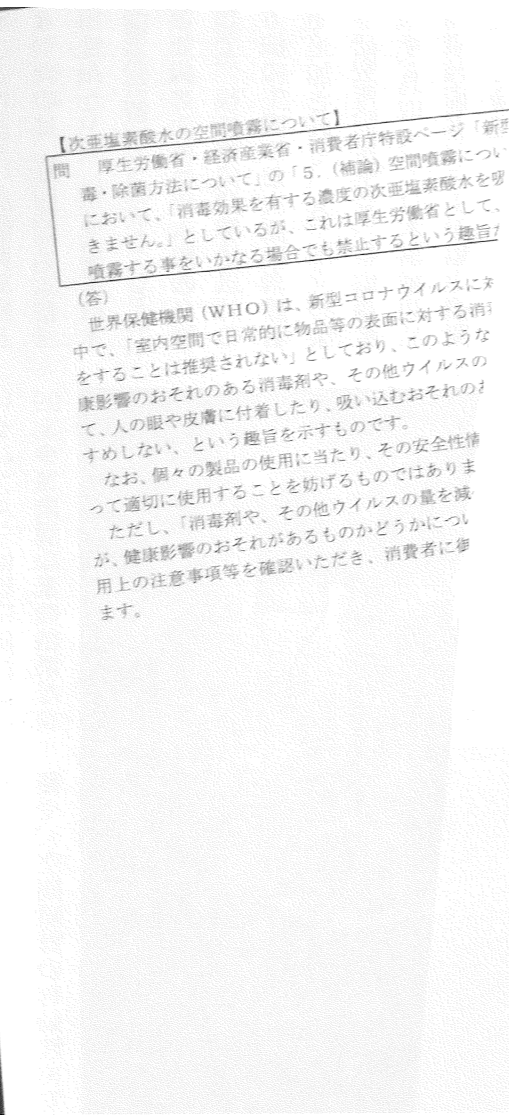 【次亜塩素酸水の空間噴霧について】
問 厚生労働省・経済産業省・消費者庁特設ページ「新型
毒・除菌方法について」の「5．（補論）空間噴霧につい
において、「消毒効果を有する濃度の次亜塩素酸水を吸
きません。」としているが、これは厚生労働省として、
噴霧する事をいかなる場合でも禁止するという趣旨か
（答）
世界保健機関（WHO）は、新型コロナウイルスに対
中で、「室内空間で日常的に物品等の表面に対する消毒
をすることは推奨されない」としており、このような
康影響のおそれのある消毒剤や、その他ウイルスの
て、人の眼や皮膚に付着したり、吸い込むおそれのあ
すめしない、という趣旨を示すものです。
なお、個々の製品の使用に当たり、その安全性情
って適切に使用することを妨げるものではありま
ただし、「消毒剤や、その他ウイルスの量を減
が、健康影響のおそれがあるものかどうかについ
用上の注意事項等を確認いただき、消費者に御
ます。